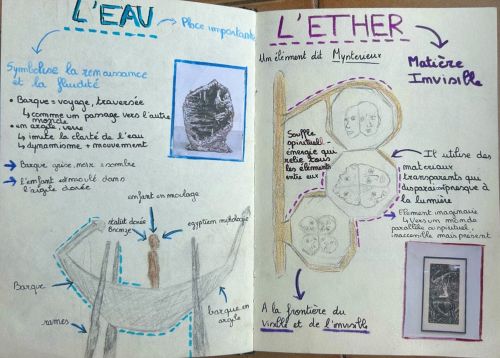 L'EAU
Place importante
Symbolise la renaissance
et la fluidité
• Barque = voyage, traversée
↳ comme un passage vers l'autre
monde
• en argile, verre
↳ imite la clarté de l'eau
↳ dynamisme + mouvement
→ Barque grise, noire, sombre
→ L'enfant est moulé dans
l'argile dorée
enfant en moulage
statut dorée
Bronze
egyptien mythologie
Barque
rames
barque en
argile
L'ETHER
Un élément dit Mysterieux
Matière
Invisible
Souffle
spirituel -
énergie qui
relie tous
les éléments
entre eux
Il utilise des
materiaux
transparents qui
disparaissent presque à
la lumière
→ Element imaginaire
↳ Vers un monde
parallèle ou spirituel,
inaccessible mais présent
A la frontière du
visible et de l'invisible